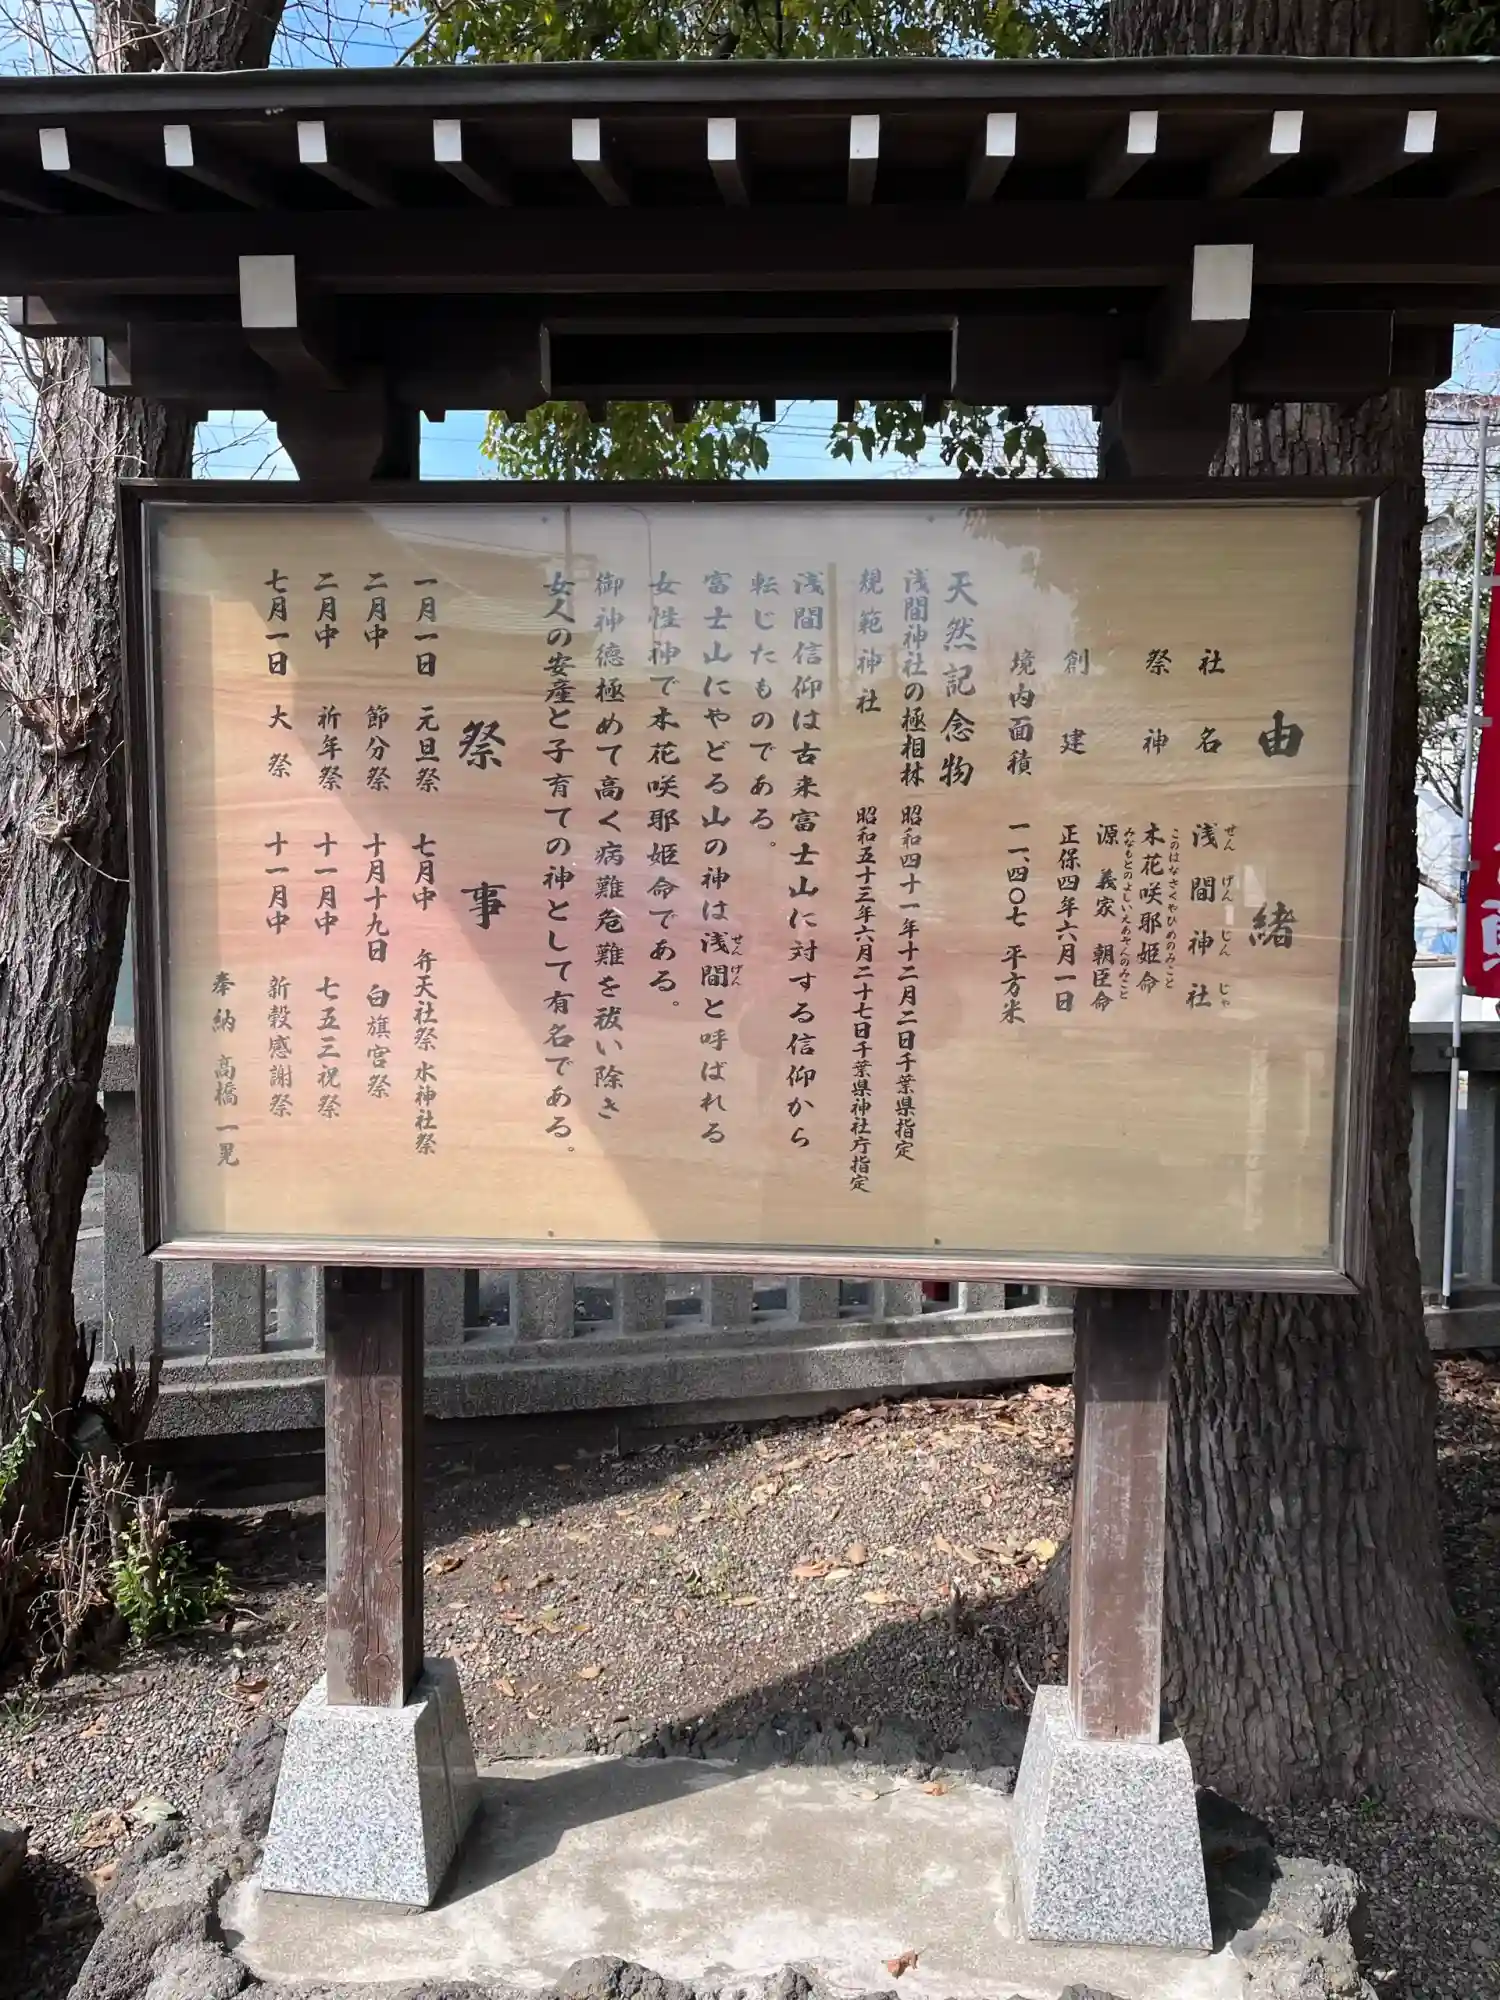 由緒
社名 浅間神社
せんげんじんじゃ
祭神 木花咲耶姫命
このはなさくやひめのみこと
源 義家 朝臣命
みなもとのよしいえあそんのみこと
創建 正保四年六月一日
境内面積 一一、四〇七 平方米
天然記念物
浅間神社の極相林 昭和四十一年十二月二日千葉県指定
規範神社 昭和五十三年六月二十七日千葉県神社庁指定
浅間信仰は古来富士山に対する信仰から
転じたものである。
富士山にやどる山の神は浅間と呼ばれる
せんげん
女性神で木花咲耶姫命である。
御神徳極めて高く病難危難を祓い除き
女人の安産と子育ての神として有名である。
祭事
一月一日 元旦祭 七月中 弁天社祭 水神社祭
二月中 節分祭 十月十九日 白旗宮祭
二月中 祈年祭 十一月中 七五三祝祭
七月一日 大祭 十一月中 新穀感謝祭
奉納 高橋一晃